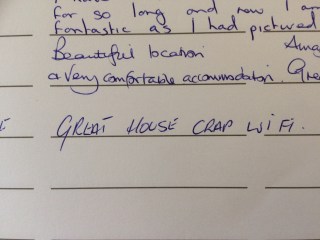 for so long and now I am
fantastic as I had pictured
Beautiful location Ama
a very comfortable accommodation. Gre
E GREAT HOUSE CRAP WIFI.